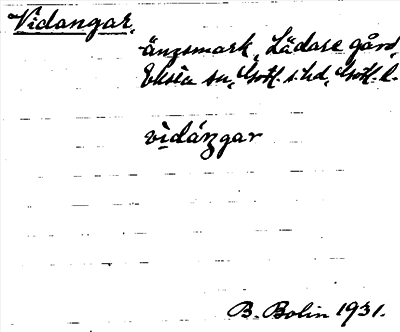 Vidangar,
ängsmark, Lädare gård,
Eksta sn, Gotl. s. hd, Gotl. l.
vidángar
B. Bolin 1931.